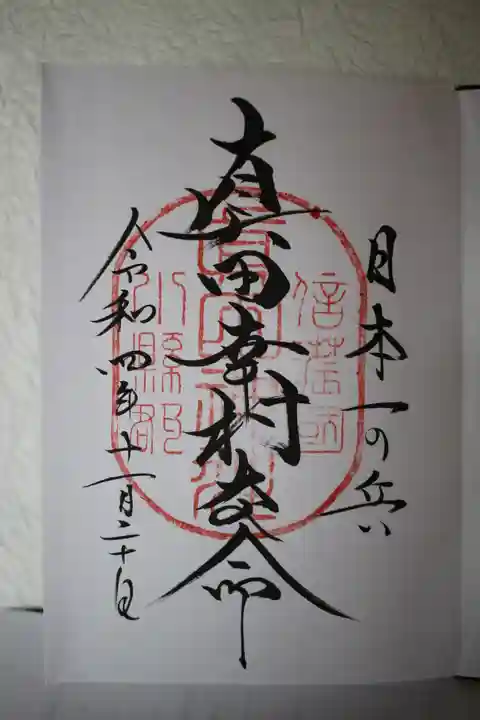 日本一の兵
真田幸村大命
信濃国
小縣郡
令和四年十一月二十日